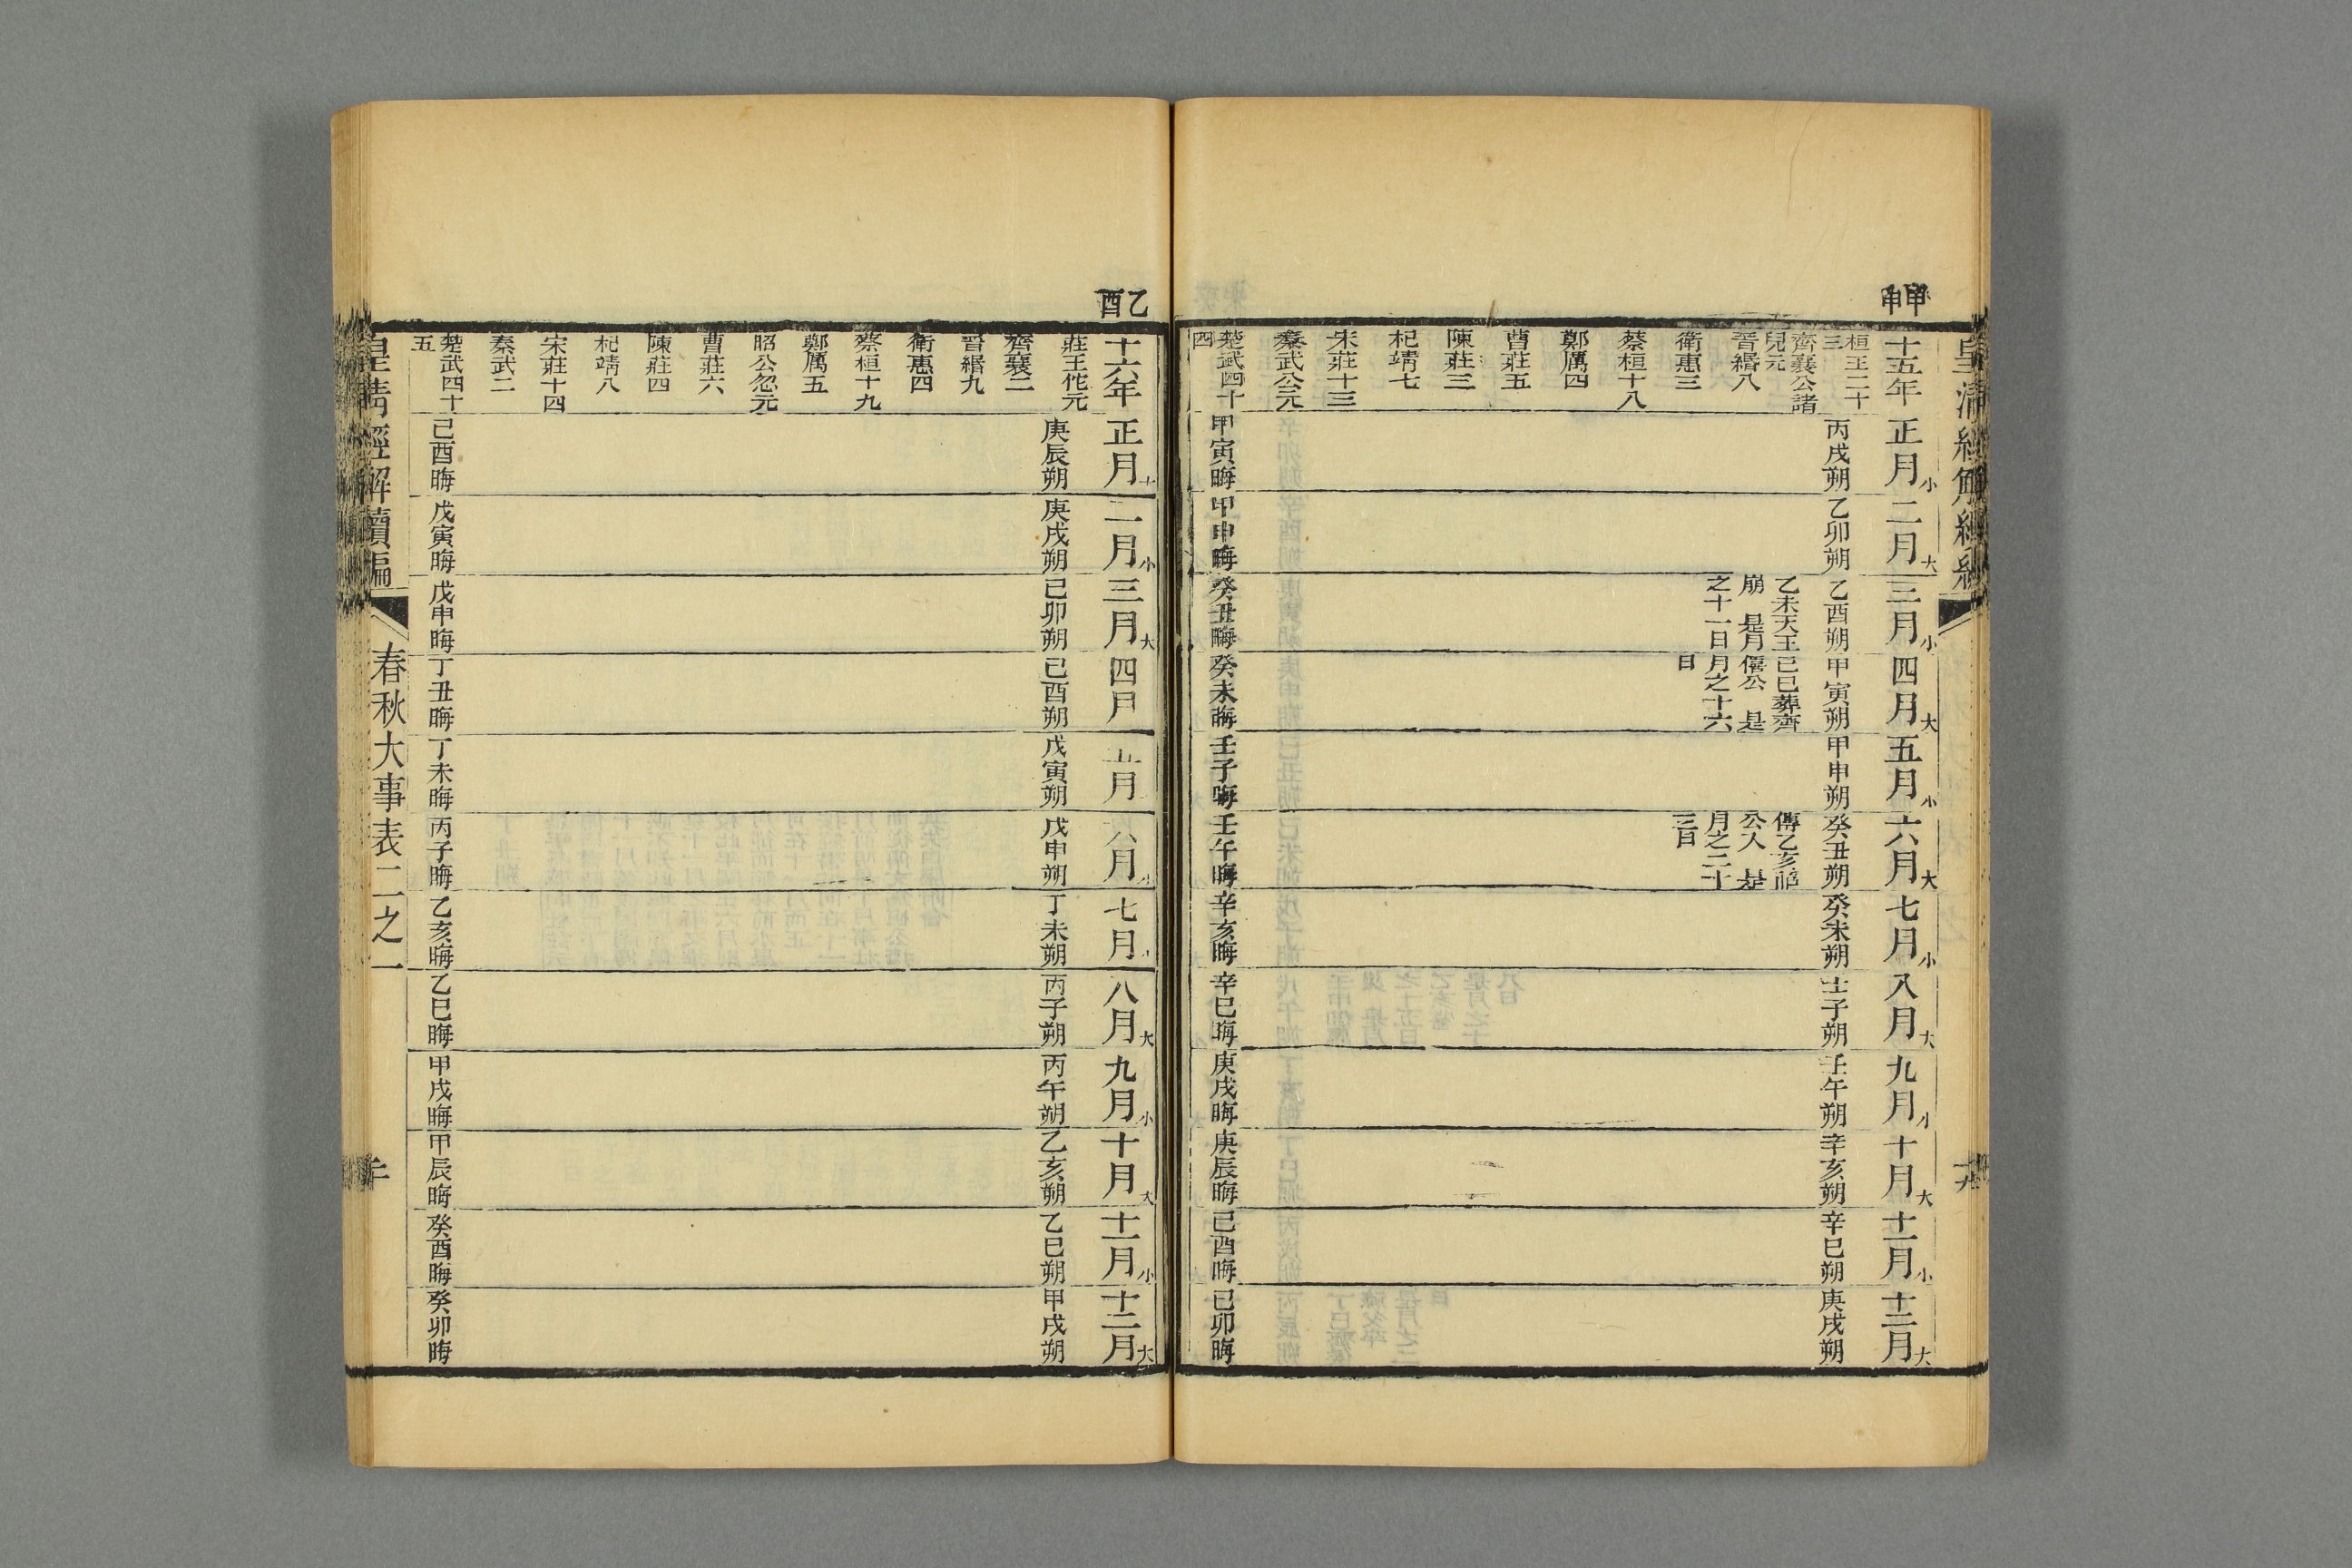 甲申
十五年
桓王二十
三
齊襄公諸
兒元
晉緡八
衛惠三
蔡桓十八
鄭厲四
曹莊五
陳莊三
杞靖七
宋莊十三
秦武公元
楚武四十
四
正月小
丙戌朔
甲寅晦
二月大
乙卯朔
甲申晦
三月小
乙酉朔
乙未天王
崩 是月
之十一日
癸丑晦
四月大
甲寅朔
己巳葬齊
僖公 是
月之十六
日
癸未晦
五月小
甲申朔
壬子晦
六月大
癸丑朔
傳乙亥昭
公入 是
月之二十
三日
壬午晦
七月小
癸未朔
辛亥晦
八月大
壬子朔
辛巳晦
九月小
壬午朔
庚戌晦
十月大
辛亥朔
庚辰晦
十一月小
辛巳朔
己酉晦
十二月大
庚戌朔
己卯晦
乙酉
十六年
莊王佗元
齊襄二
晉緡九
衛惠四
蔡桓十九
鄭厲五
昭公忽元
曹莊六
陳莊四
杞靖八
宋莊十四
秦武二
楚武四十
五
正月
庚辰朔
己酉晦
二月小
庚戌朔
戊寅晦
三月大
己卯朔
戊申晦
四月
己酉朔
丁丑晦
五月
戊寅朔
丁未晦
六月
戊申朔
丙子晦
七月
丁未朔
乙亥晦
八月大
丙子朔
乙巳晦
九月小
丙午朔
甲戌晦
十月大
乙亥朔
甲辰晦
十一月小
乙巳朔
癸酉晦
十二月大
甲戌朔
癸卯晦
皇清經解續編
春秋大事表二之一